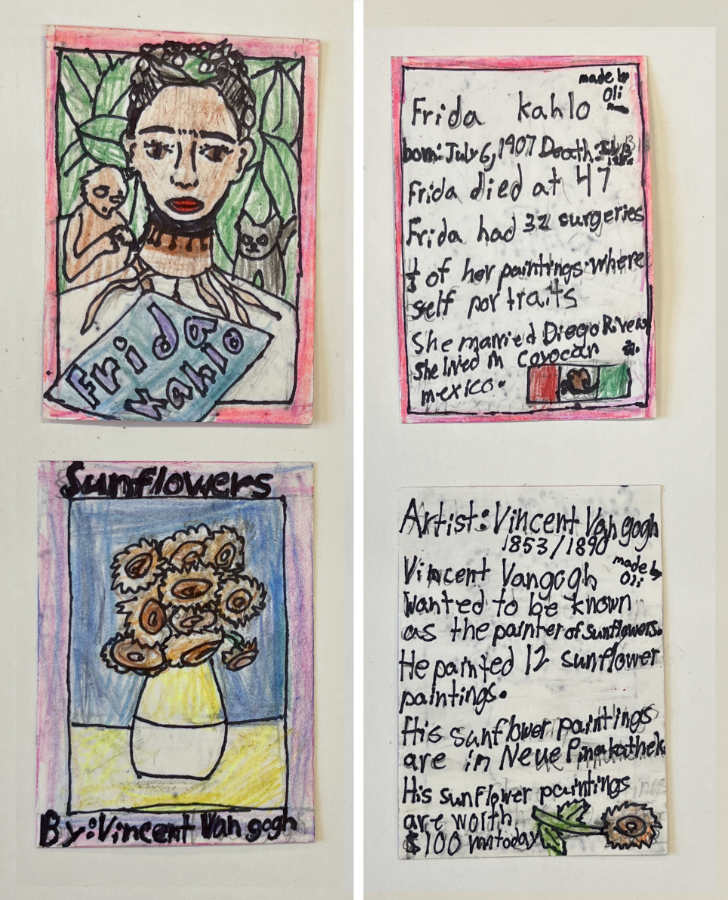 Frida
Kahlo
Sunflowers
By: Vincent Van gogh
made by
Oli
Frida kahlo
born: July 6, 1907 Death: July 13
Frida died at 47
Frida had 32 surgeries
of her paintings where
self portraits
She married Diego Rivera.
She lived in Coyocan
mexico.
Artist: Vincent Van gogh
1853/1890
made by
Oli
Vincent Vangogh
wanted to be known
as the painter of sunflowers.
He painted 12 sunflower
paintings.
His sunflower paintings
are in Neue Pinakothek
His sunflower paintings
are worth
$100 m today